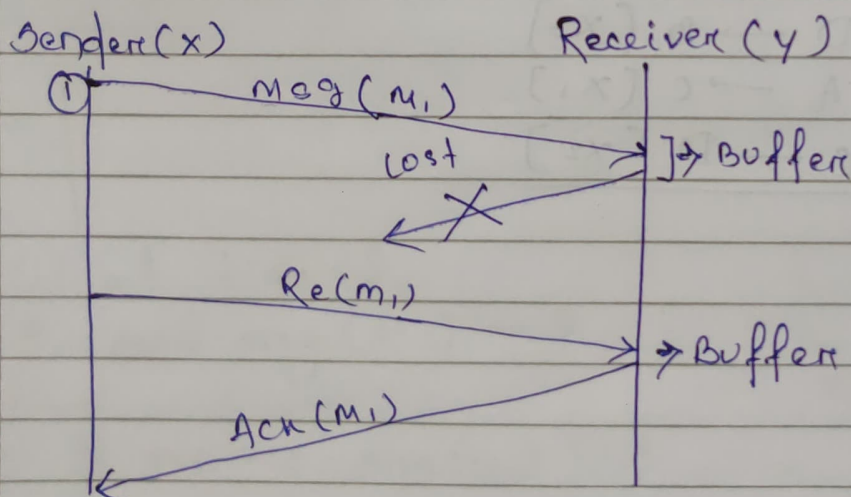 Sender(X) Receiver (Y)
① Msg (M₁)
Lost ]→ Buffer
Re(m₁)
→ Buffer
Ack (M₁)